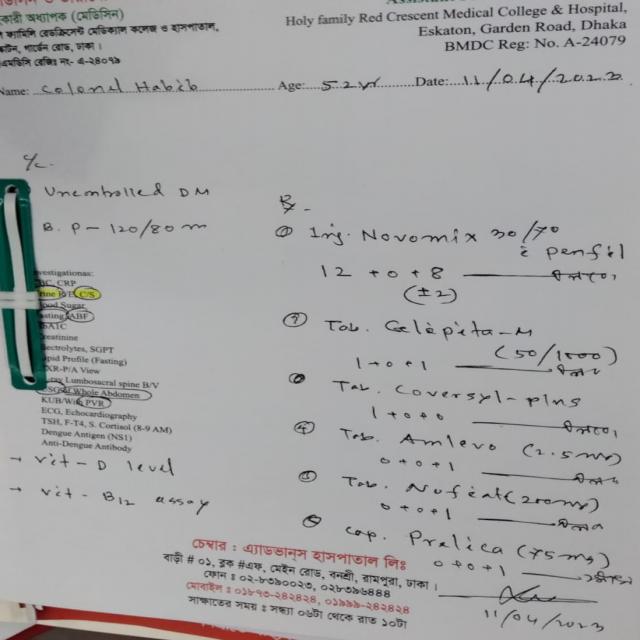 কারী অধ্যাপক (মেডিসিন)
ফ্যামিলি রেডক্রিসেন্ট মেডিক্যাল কলেজ ও হাসপাতাল,
গার্ডেন রোড, ঢাকা।
এমডিসি রেজিঃ নং- এ-২৪০৭৯
Holy family Red Crescent Medical College & Hospital,
Eskaton, Garden Road, Dhaka
BMDC Reg: No. A-24079
Name: Colonel Habib Age: 52 yr Date: 11/04/2023
Uncontrolled DM
B. P - 120/80 m
Investigationas:
CBC, CRP
Urine R/E, C/S
Blood Sugar
Fasting/ABF
HbA1C
Creatinine
Electrolytes, SGPT
Lipid Profile (Fasting)
CXR-P/A View
X-ray Lumbosacral spine B/V
USG of Whole Abdomen
KUB/With PVR
ECG, Echocardiography
TSH, F-T4, S. Cortisol (8-9 AM)
Dengue Antigen (NS1)
Anti-Dengue Antibody
→ Vit - D level
→ Vit - B12 assay
Rx -
① Inj. Novomix 30/70
c̄ penfil
12 + 0 + 8
(±2)
Tab. Galipita-M
(50/1000)
1 + 0 + 1
Tab. Coversyl-plus
1 + 0 + 0
④ Tab. Amlevo (2.5 mg)
0 + 0 + 1
⑤ Tab. (200mg)
0 + 0 + 1
Cap. Prelica (75 mg)
0 + 0 + 1
11/04/2023
চেম্বার : এ্যাডভান্স হাসপাতাল লিঃ
বাড়ী # ০১, ব্লক #এফ, মেইন রোড, বনশ্রী, রামপুরা, ঢাকা।
ফোন : ০২-৮৩৯০০২৩, ০২৮৩৯৬৪৪৪
মোবাইল : ০১৮৭৩-২৪২৪২৪, ০১৯৯৯-২৪২৪২৪
সাক্ষাতের সময় : সন্ধ্যা ০৬টা থেকে রাত ১০টা